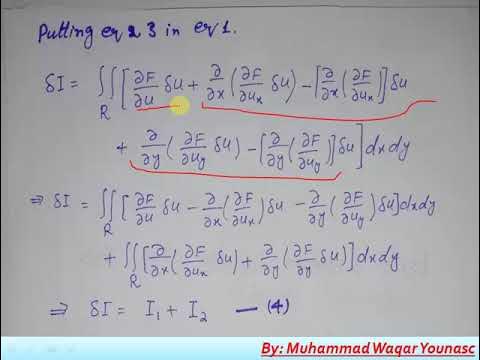 Putting eq 2 3 in eq 1.
δI = ∬_R [ ∂F/∂u δu + ∂/∂x (∂F/∂u_x δu) − [∂/∂x (∂F/∂u_x)] δu
+ ∂/∂y (∂F/∂u_y δu) − [∂/∂y (∂F/∂u_y)] δu ] dxdy
⇒ δI = ∬_R [ ∂F/∂u δu − ∂/∂x (∂F/∂u_x) δu − ∂/∂y (∂F/∂u_y) δu ] dxdy
+ ∬_R [ ∂/∂x (∂F/∂u_x δu) + ∂/∂y (∂F/∂y δu) ] dxdy
⇒ δI = I₁ + I₂ — (4)
By: Muhammad Waqar Younasc